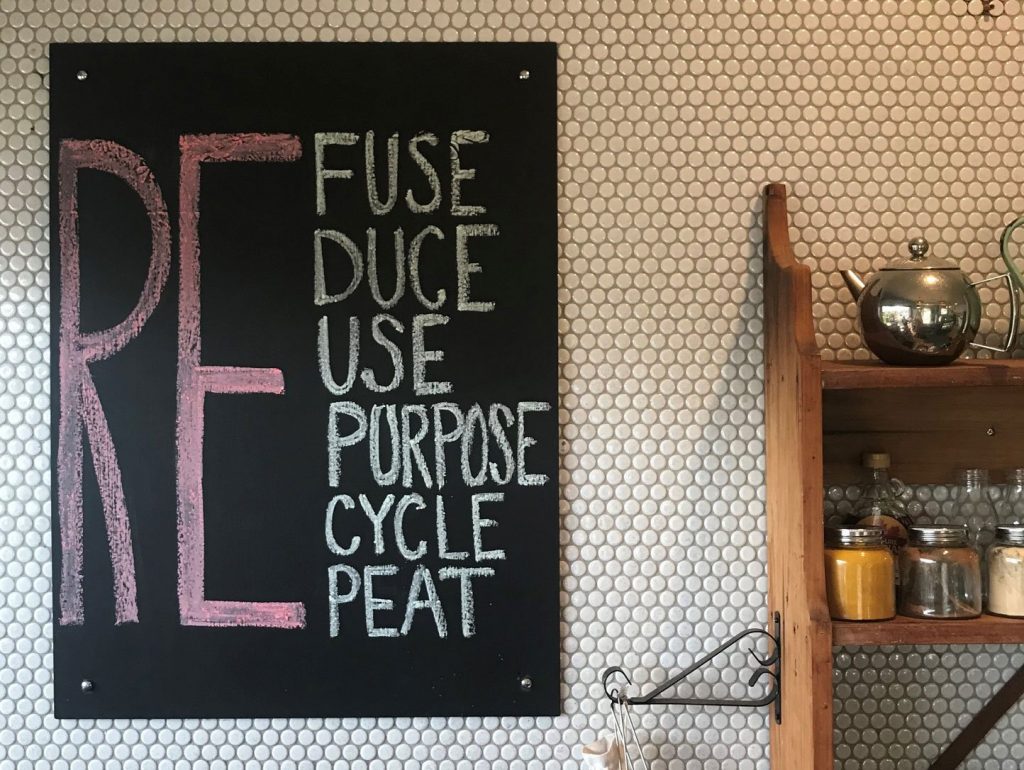 RE
FUSE
DUCE
USE
PURPOSE
CYCLE
PEAT